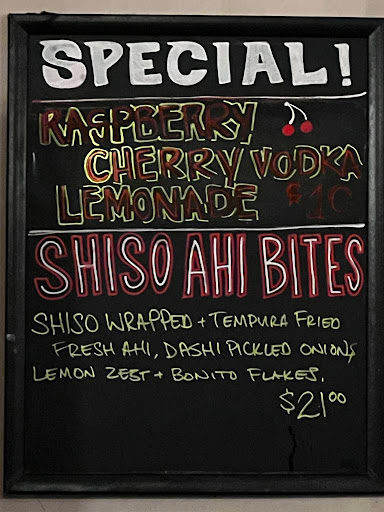 SPECIAL!
RASPBERRY
CHERRY VODKA
LEMONADE $10
SHISO AHI BITES
SHISO WRAPPED + TEMPURA FRIED
FRESH AHI, DASHI PICKLED ONIONS,
LEMON ZEST + BONITO FLAKES.
$21.00